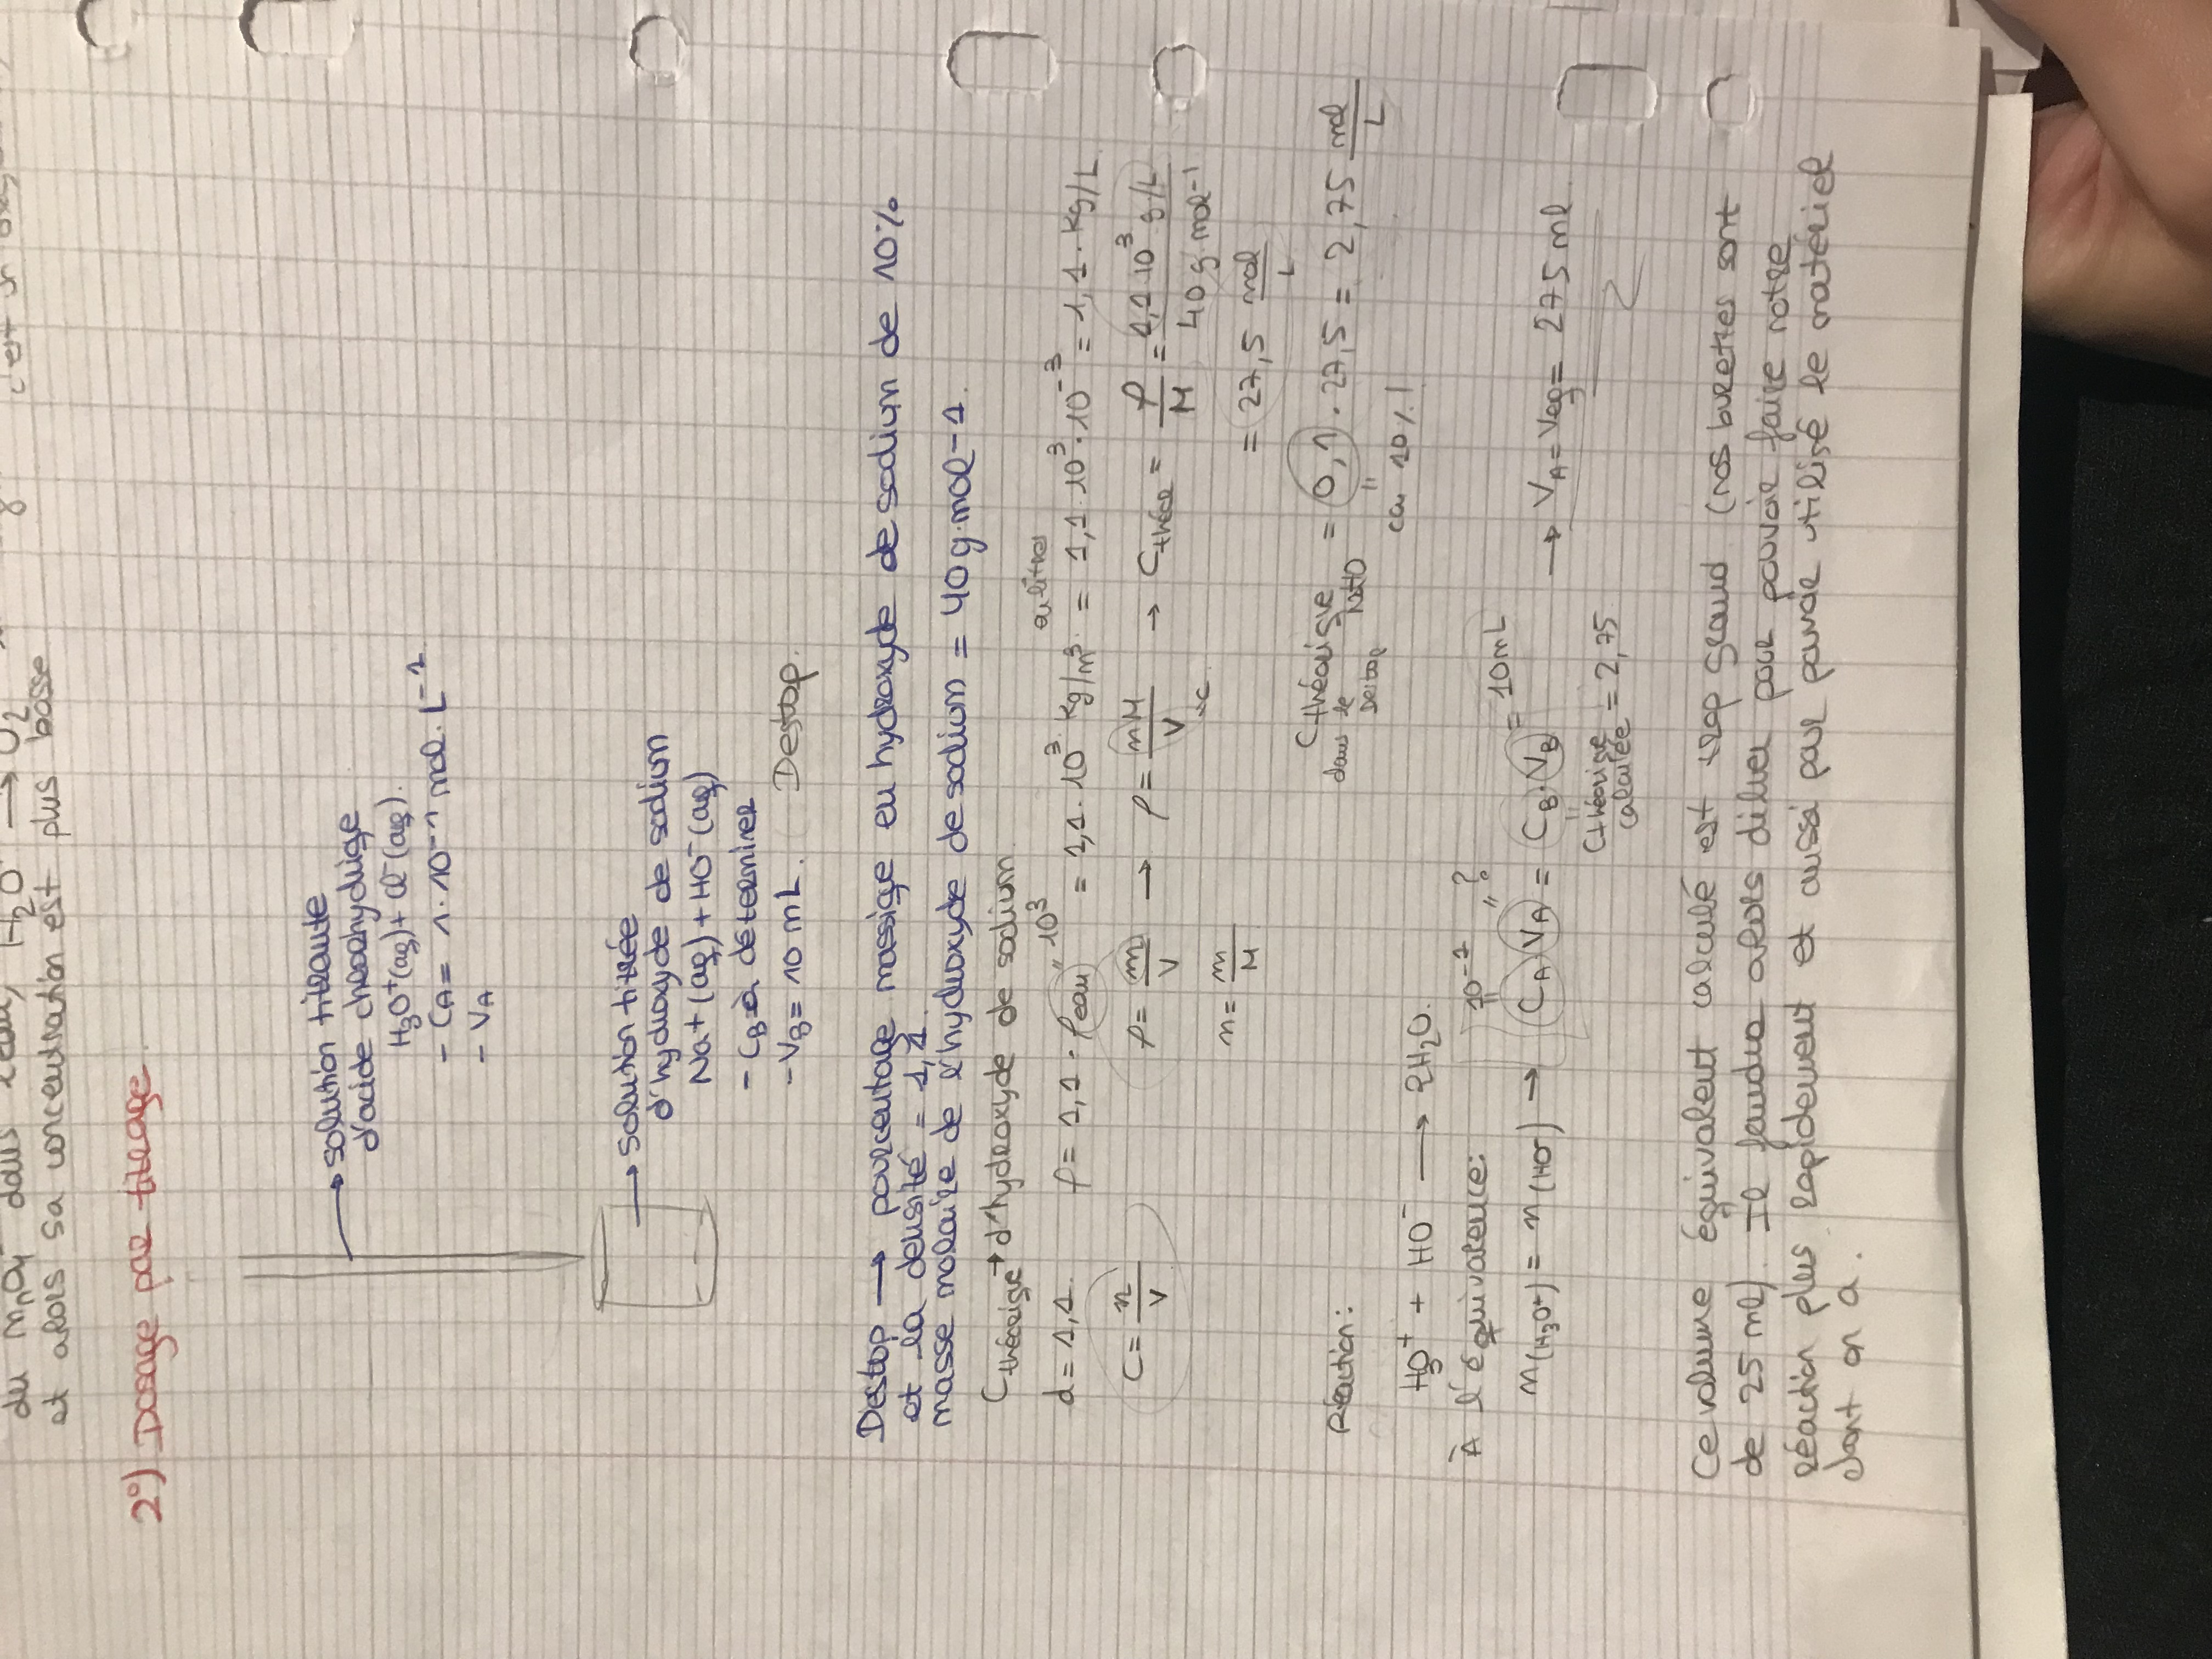 du MnO4⁻ dans l'eau, H2O → O2 c'est un
et alors sa concentration est plus basse
2°) Dosage par titrage.
→ solution titrante
d'acide chlorhydrique
H3O⁺(aq) + Cl⁻(aq).
- CA = 1·10⁻¹ mol·L⁻¹
- VA
→ solution titrée
d'hydroxyde de sodium
Na⁺(aq) + HO⁻(aq)
- CB = à déterminer
- VB = 10 mL. Destop.
Destop → pourcentage massique en hydroxyde de sodium de 10%
et la densité = 1,1.
masse molaire de l'hydroxyde de sodium = 40 g·mol-1.
Cthéorique → d'hydroxyde de sodium
d = 1,1. ρ = 1,1 · ρeau " 10³ = 1,1·10³ kg/m³ = en litres 1,1·10³·10⁻³ = 1,1·kg/L
C = n/V ρ = m/V → ρ = nM/V → Cthéor = ρ/M = 1,1 10³ g/L / 40 g mol⁻¹
=C
n = m/M
= 27,5 mol/L
Cthéorique dans le Destop NaHO = 0,1 · 27,5 = 2,75 mol/L
" car 10%!
Réaction:
H3O⁺ + HO⁻ → 2H2O.
À l'équivalence: 10⁻¹ " ?
n(H3O⁺) = n(HO⁻) → CA·VA = CB·VB = 10mL → VA = Veq = 275 ml
Cthéorique calculée = 2,75
Ce volume équivalent calculé est trop grand (nos burettes sont
de 25 ml). Il faudra alors diluer pour pouvoir faire notre
réaction plus rapidement et aussi par pouvoir utilisé le matériel
dont on a.